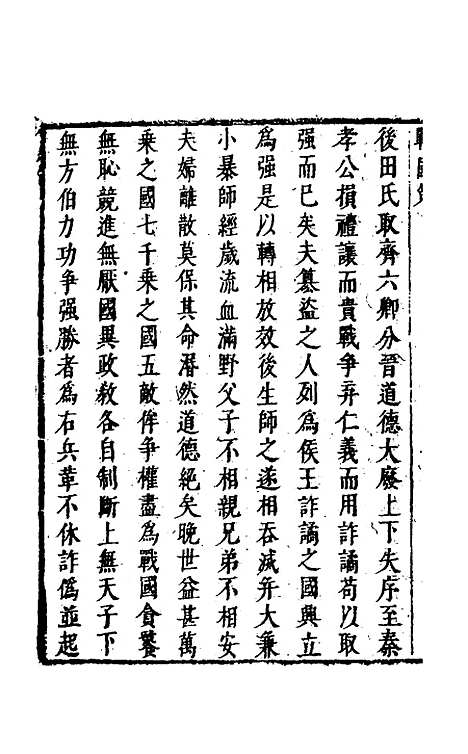 後田氏取齊六卿分晉道德大廢上下失序至秦
孝公損禮讓而貴戰争弃仁義而用詐譎苟以取
强而已矣夫簒盗之人列為侯王詐譎之國興立
為强是以轉相放效後生師之遂相吞滅并大兼
小暴師經歲流血滿野父子不相親兄弟不相安
夫婦離散莫保其命湣然道德絶矣晚世益甚萬
乗之國七千乗之國五敵侔争權盡為戰國貪饕
無恥競進無厭國異政教各自制斷上無天子下
無方伯力功争强勝者為右兵革不休詐偽並起